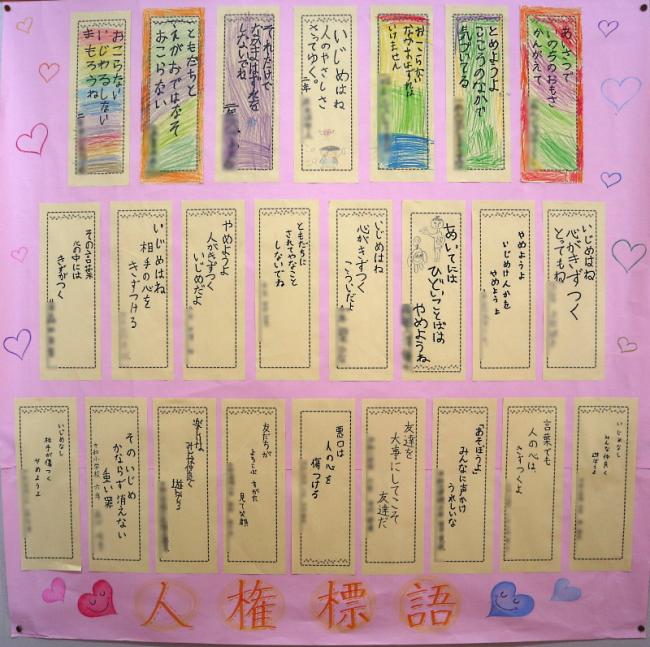 あいさつで
いのちのおもさ
かんがえて
とめようよ
こころのなかで
気づいてる
おこらない
なかまはずれは
いけません
いじめはね
人のやさしさ
さってゆく。
二年
それだけで
なかまはずれを
しないでね
二年
ともだちと
えがおではなそ
おこらない
おこらない
いじわるしない
まもろうね
いじめはね
心がきずつく
とてもね
やめようよ
いじめけんかを
やめようよ
あいてには
ひどいことばは
やめようね
いじめはね
心がきずつく
こういだよ
ともだちに
されてやなこと
しないでね
やめようよ
人がきずつく
いじめだよ
いじめはね
相手の心を
きずつける
その言葉
心の中には
きずがつく
いじめなし
みんな仲良く
遊ぼうよ
言葉でも
人の心は、
きずつくよ
「あそぼうよ」
みんなに声かけ
うれしいな
友達を
大事にしてこそ
友達だ
悪口は
人の心を
傷つける
友だちが
よろこぶすがた
見て笑顔
楽しいね
みんな仲良く
遊んでる
そのいじめ
かならず消えない
重い罪
小学校 六年
いじめなし
相手が傷つく
やめようよ
人権標語